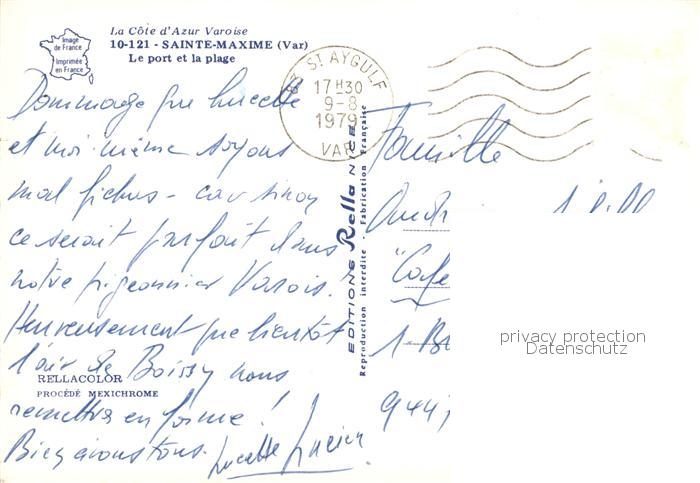 La Côte d'Azur Varoise
10-121 - SAINTE-MAXIME (Var)
Le port et la plage
Image
de France
Imprimée
en France
Dommage que Lucette
et moi même soyons
mal fichus - car sinon
ce serait parfait dans
notre pigeonnier Varois.
Heureusement que bientôt
l'air de Boissy nous
remettra en forme !
Bien à vous tous.
Lucette Lucien
RELLACOLOR
PROCÉDÉ MEXICHROME
83 ST AYGULF
17H30
9-8
1979
VAR
EDITIONS Rella NICE
Reproduction interdite - Fabrication Française
Famille
"Café
944
privacy protection
Datenschutz